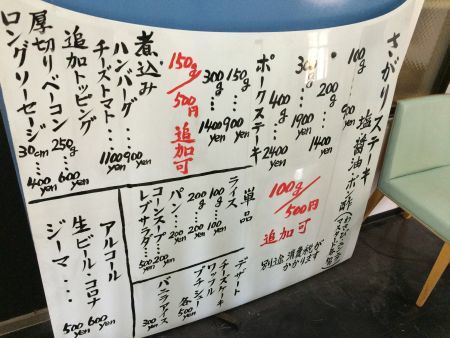 さがりステーキ
塩 醤油 ポン酢
100g…900yen
200g…1400yen
300g…1900yen
400g…2400yen
100g/500円 追加可
別途消費税がかかります
ポークステーキ
150g…900yen
300g…1400yen
150g/500円 追加可
煮込みハンバーグ…900yen
チーズトマト…1100yen
追加トッピング
厚切りベーコン 250g…600yen
ロングソーセージ 30cm…400yen
単品
ライス 100g…100yen
200g…200yen
パン…200yen
コーンスープ…200yen
レブサラダ…500yen
デザート
チーズケーキ
ワッフル
プチシュー 各500yen
バニラアイス 300yen
アルコール
生ビール・コロナ 600yen
ジーマ…500yen